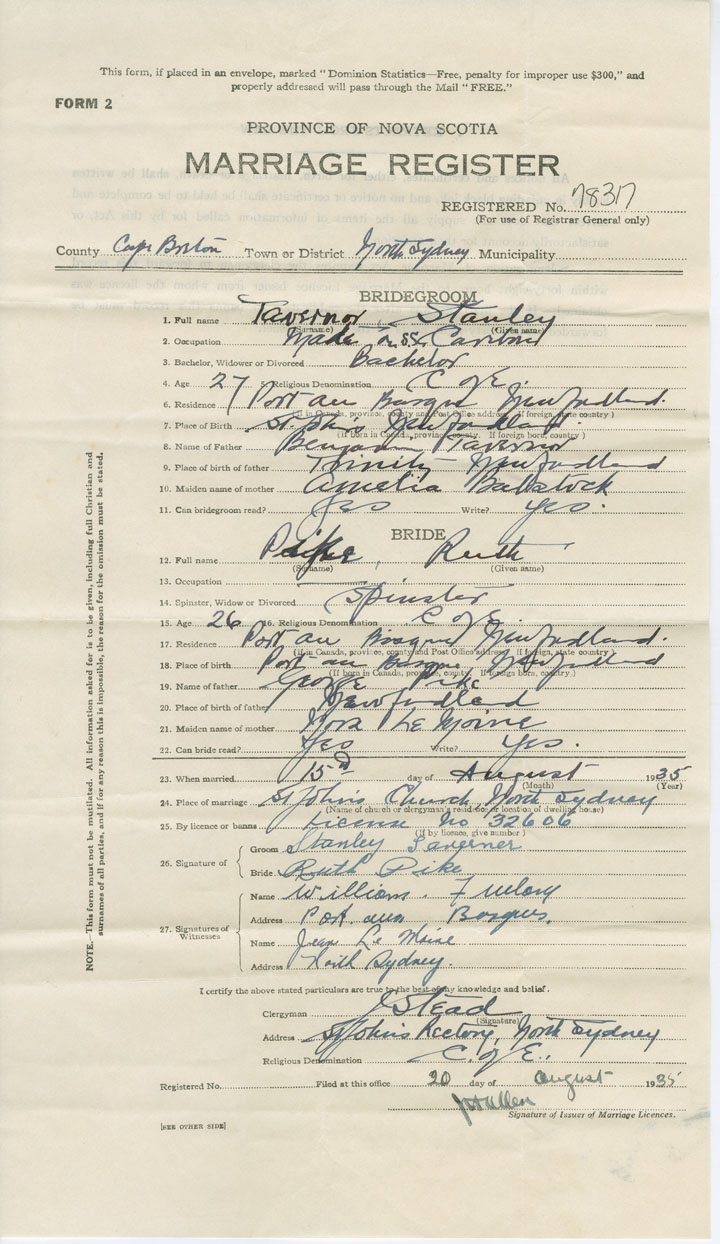 This form, if placed in an envelope, marked "Dominion Statistics—Free, penalty for improper use $300," and
properly addressed will pass through the Mail "FREE."
FORM 2
PROVINCE OF NOVA SCOTIA
MARRIAGE REGISTER
REGISTERED No. 78317
(For use of Registrar General only)
County Cape Breton Town or District North Sydney Municipality
BRIDEGROOM
1. Full name Tavernor, Stanley
(Surname) (Given name)
2. Occupation Mate on SS. Caribou
3. Bachelor, Widower or Divorced Bachelor
4. Age 27 5. Religious Denomination C of E.
6. Residence Port au Basque Newfoundland.
(If in Canada, province, county and Post Office address. If foreign, state country)
7. Place of Birth St. John's Newfoundland.
(If born in Canada, province, county. If foreign born, country.)
8. Name of Father Benjamin Tavernor
9. Place of birth of father Trinity Newfoundland
10. Maiden name of mother Amelia Babstock
11. Can bridegroom read? yes Write? yes.
BRIDE
12. Full name Pike, Ruth
(Surname) (Given name)
13. Occupation
14. Spinster, Widow or Divorced Spinster
15. Age 26 16. Religious Denomination C of E.
17. Residence Port au Basque Newfoundland.
(if in Canada, province, county and Post Office address. If foreign, state country)
18. Place of birth Port au Basque Newfoundland
(If born in Canada, province, county. If foreign born, country.)
19. Name of father George Pike
20. Place of birth of father Newfoundland
21. Maiden name of mother Nora Le Moine
22. Can bride read? Yes Write? Yes.
23. When married 15th day of August 1935
(Month) (Year)
24. Place of marriage St John's Church, North Sydney
(Name of church or clergyman's residence or location of dwelling house)
25. By licence or banns License No 32606
(If by licence, give number)
26. Signature of
Groom Stanley Taverner
Bride Ruth Pike
27. Signatures of Witnesses
Name William Furlong
Address Port aux Basques.
Name Jean Le Moine
Address North Sydney.
I certify the above stated particulars are true to the best of my knowledge and belief.
Clergyman Stead
(Signature)
Address St John's Rectory, North Sydney
Religious Denomination C. of E.
Registered No. Filed at this office 20 day of August 1935
Signature of Issuer of Marriage Licences.
[SEE OTHER SIDE]
NOTE.—This form must not be mutilated. All information asked for is to be given, including full Christian and
surnames of all parties, and if for any reason this is impossible, the reason for the omission must be stated.